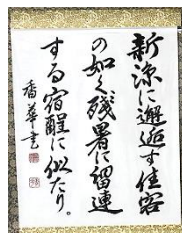 新涼に邂逅す佳客
の如く残暑に留連
する宿醒に似たり。
香華書